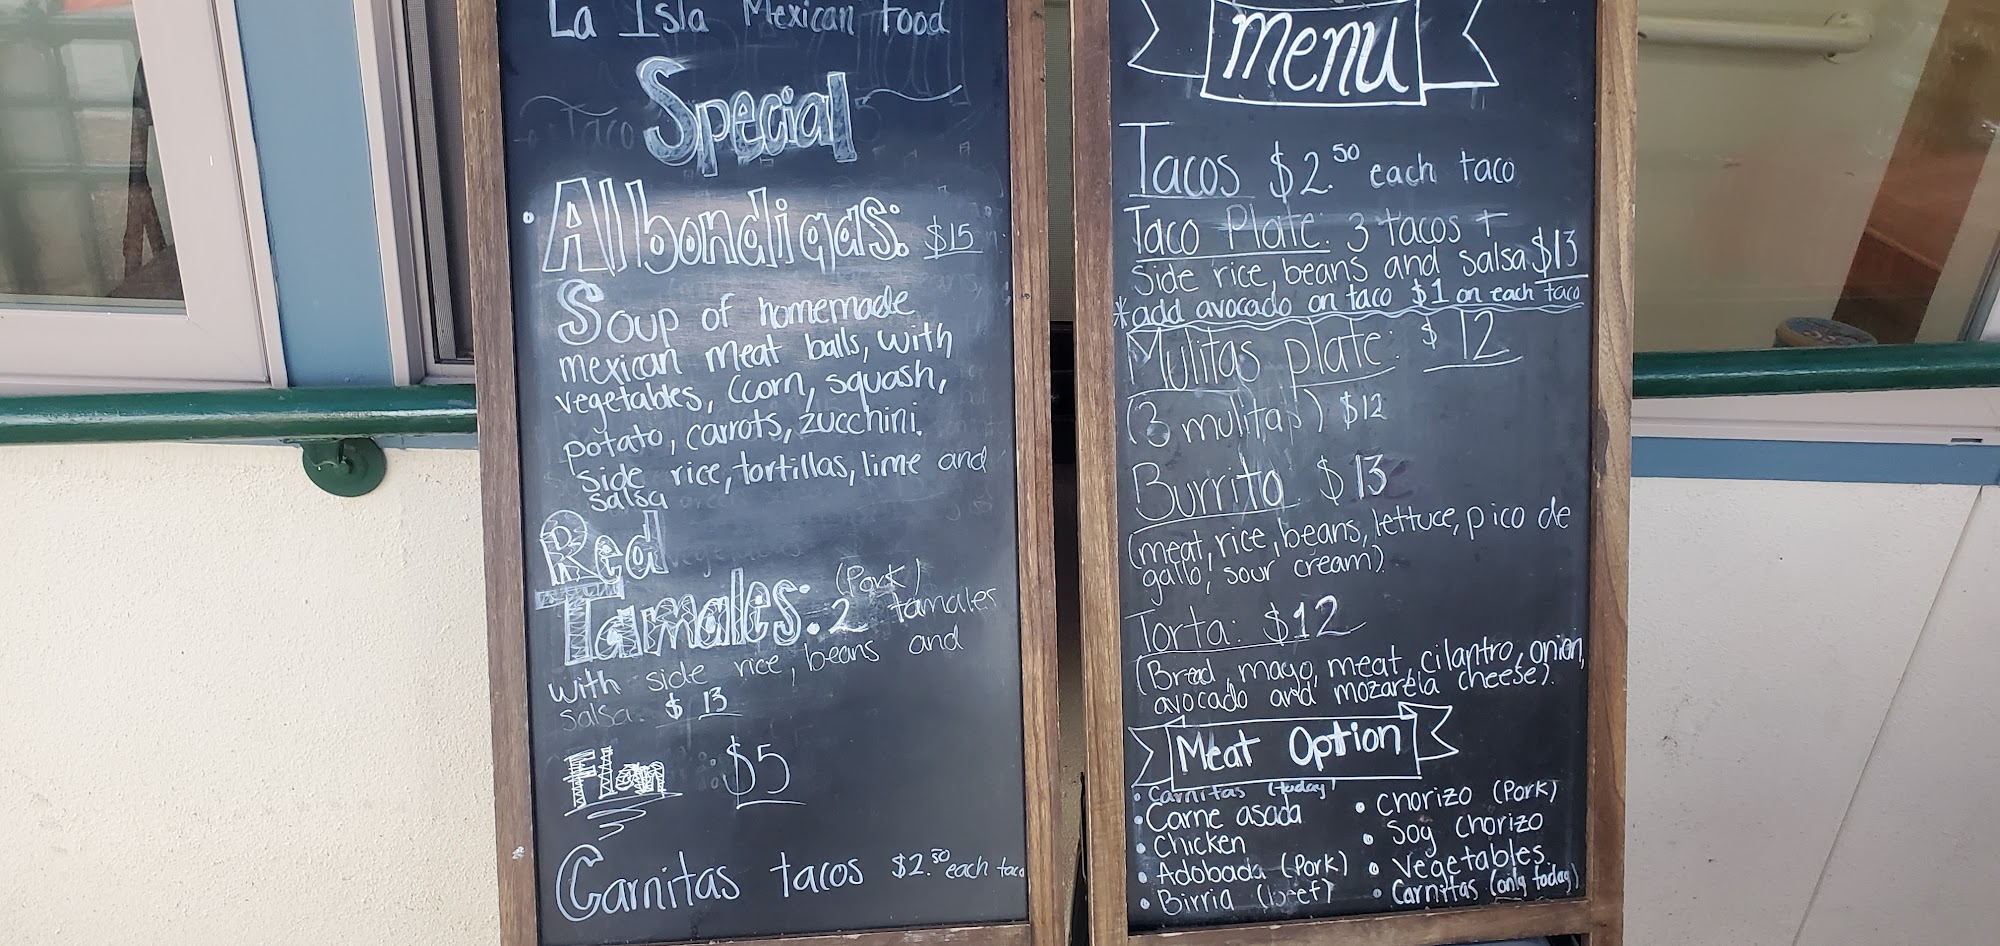 La Isla Mexican Food
Special
• Albondigas: $15
Soup of homemade
mexican meat balls, with
vegetables, (corn, squash,
potato, carrots, zucchini.
side rice, tortillas, lime and
salsa
Red
Tamales: (Pork) 2 tamales
with side rice, beans and
salsa. $13
Flan : $5
Carnitas tacos $2.50 each taco
menu
Tacos $2.50 each taco
Taco Plate: 3 tacos +
side rice, beans and salsa $13
*add avocado on taco $1 on each taco
Mulitas plate: $12
(3 mulitas) $12
Burrito $13
(meat, rice, beans, lettuce, pico de
gallo, sour cream).
Torta: $12
(Bread, mayo, meat, cilantro, onion,
avocado and mozarela cheese).
Meat Option
• Carnitas (today)
• Carne asada
• Chicken
• Adobada (Pork)
• Birria (beef)
• Chorizo (Pork)
• Soy Chorizo
• Vegetables
• Carnitas (only today)